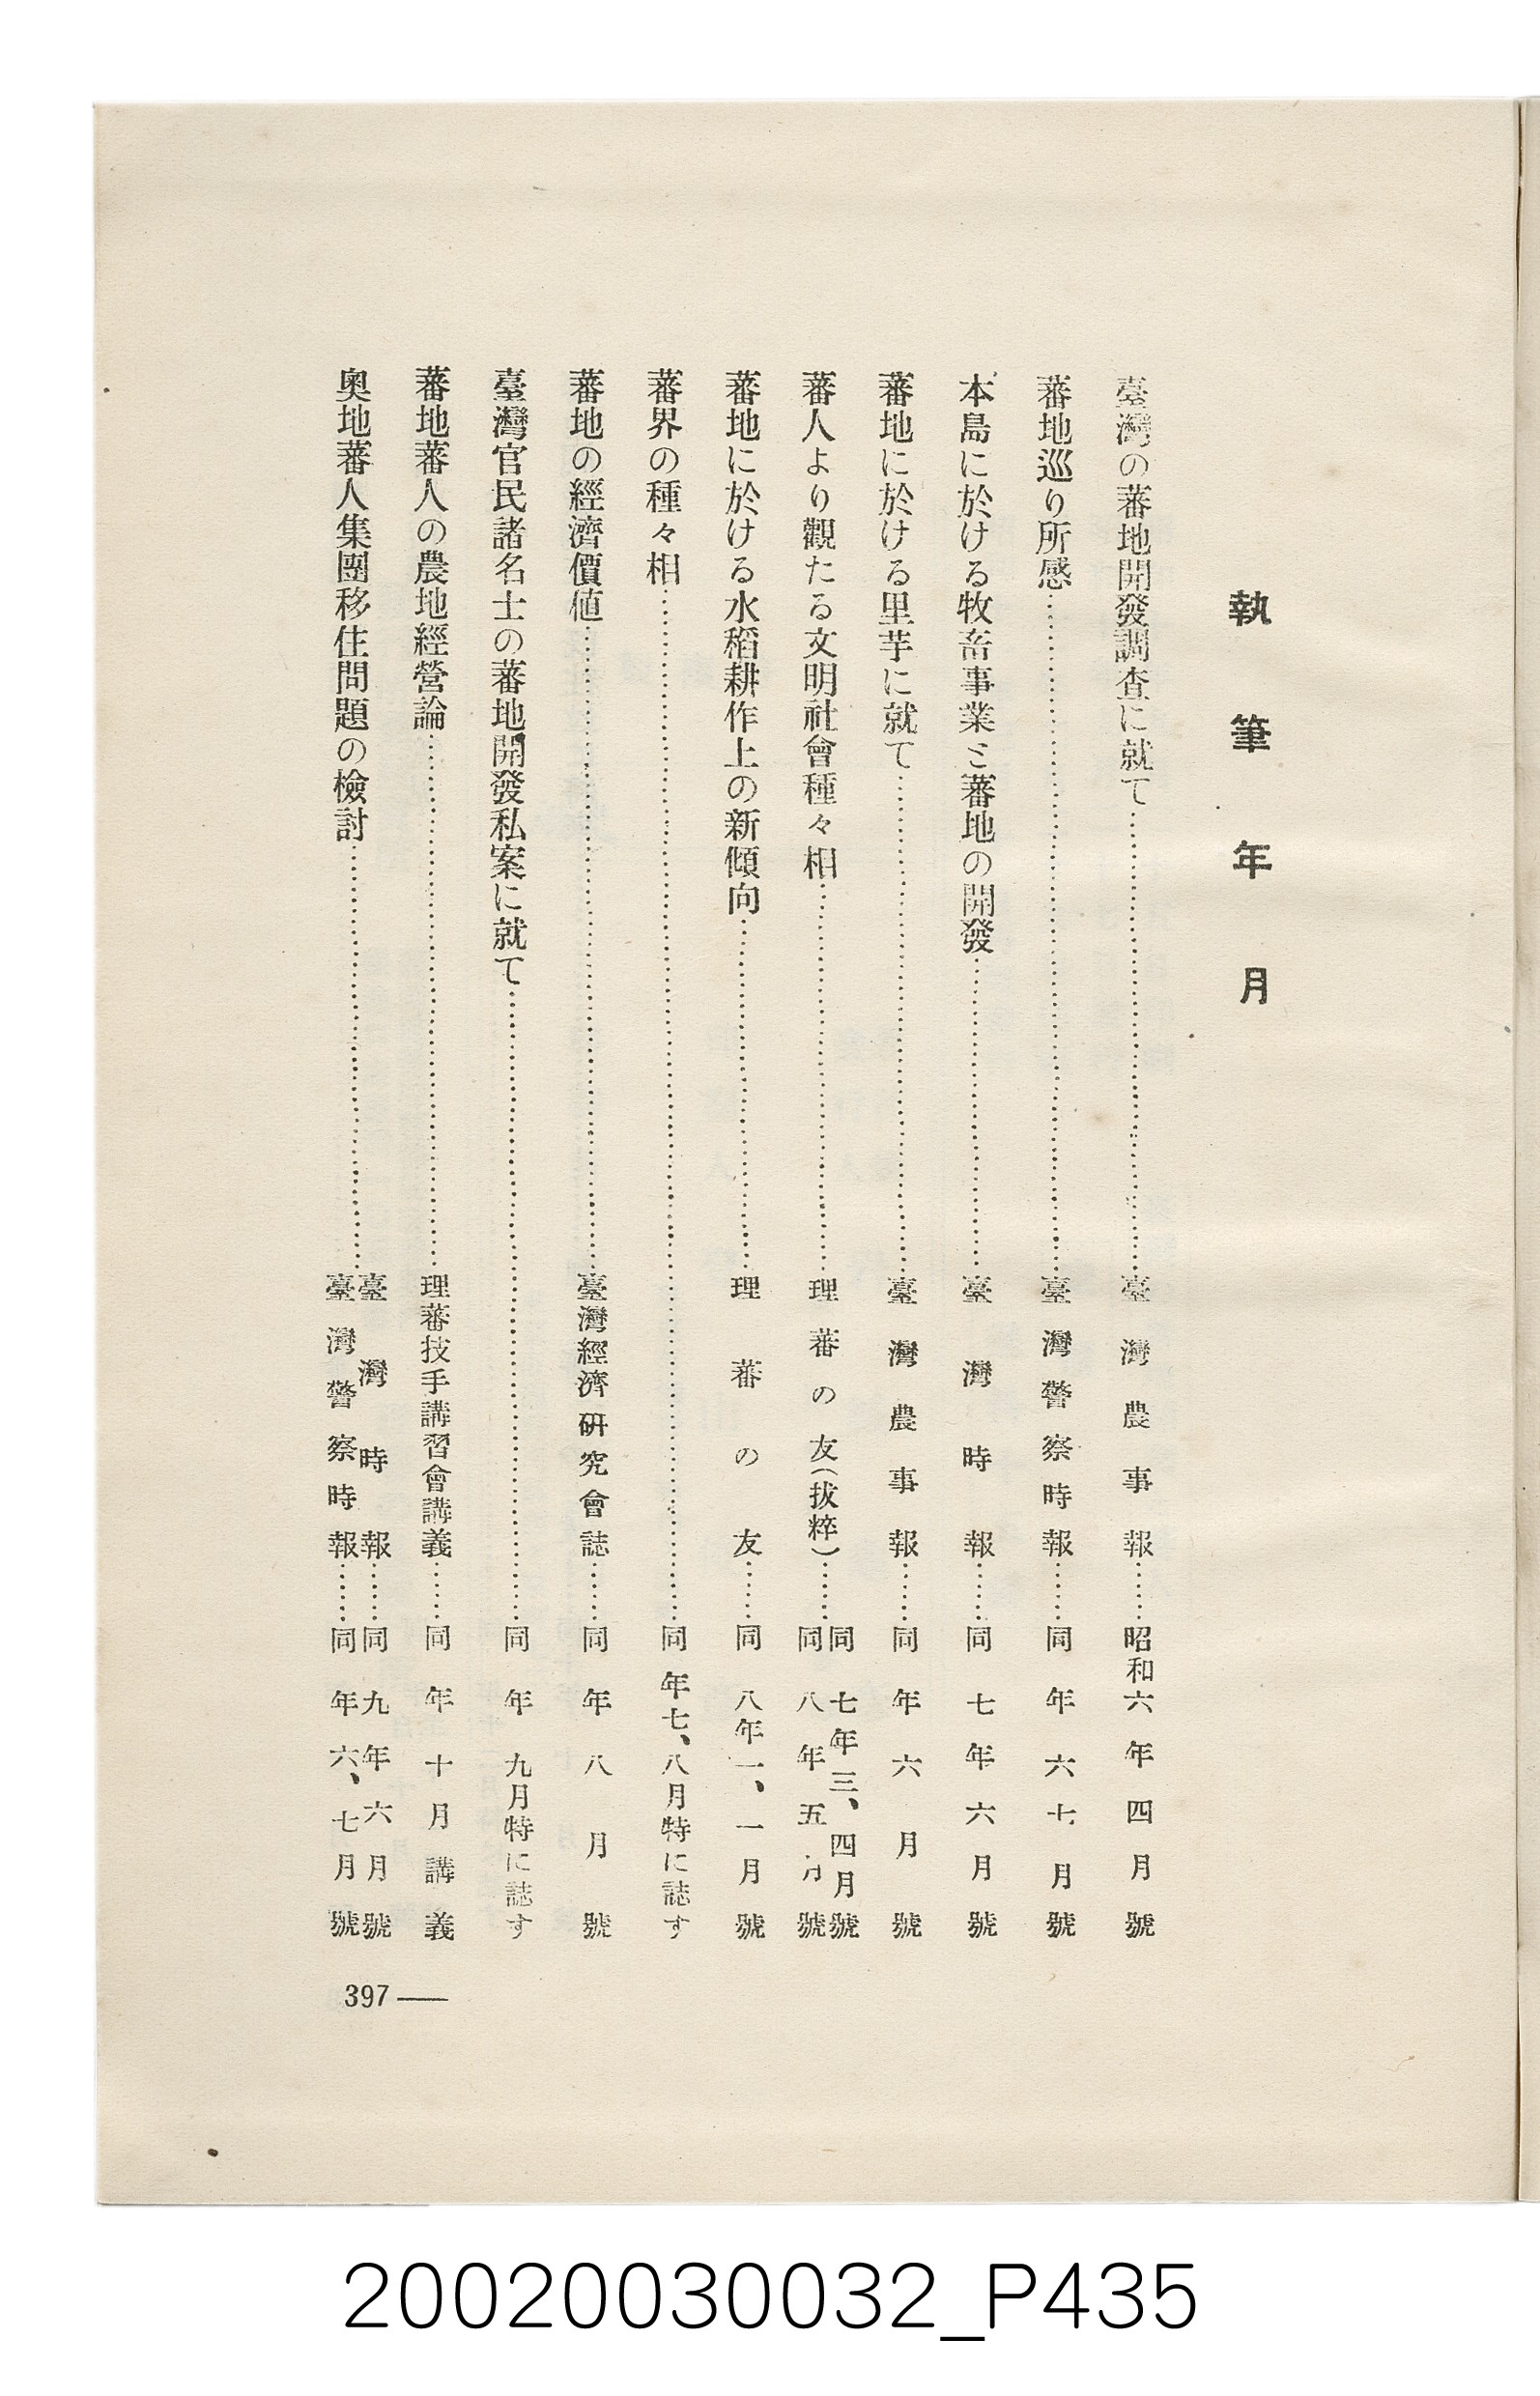 執筆年月
臺灣の蕃地開發調査に就て……臺灣農事報……昭和六年四月號
蕃地巡り所感……臺灣警察時報……同年六七月號
本島に於ける牧畜事業と蕃地の開發……臺灣時報……同七年六月號
蕃地に於ける里芋に就て……臺灣農事報……同年六月號
蕃人より觀たる文明社會種々相……理蕃の友(拔粹)……同七年三、四月號
同八年五月號
蕃地に於ける水稻耕作上の新傾向……理蕃の友……同八年一、一月號
蕃界の種々相……同年七、八月特に誌す
蕃地の經濟價値……臺灣經濟硏究會誌……同年八月號
臺灣官民諸名士の蕃地開發私案に就て……同年九月特に誌す
蕃地蕃人の農地經營論……理蕃技手講習會講義……同年十月講義
奧地蕃人集團移住問題の檢討……臺灣時報……同九年六月號
臺灣警察時報……同年六、七月號
397——
20020030032_P435